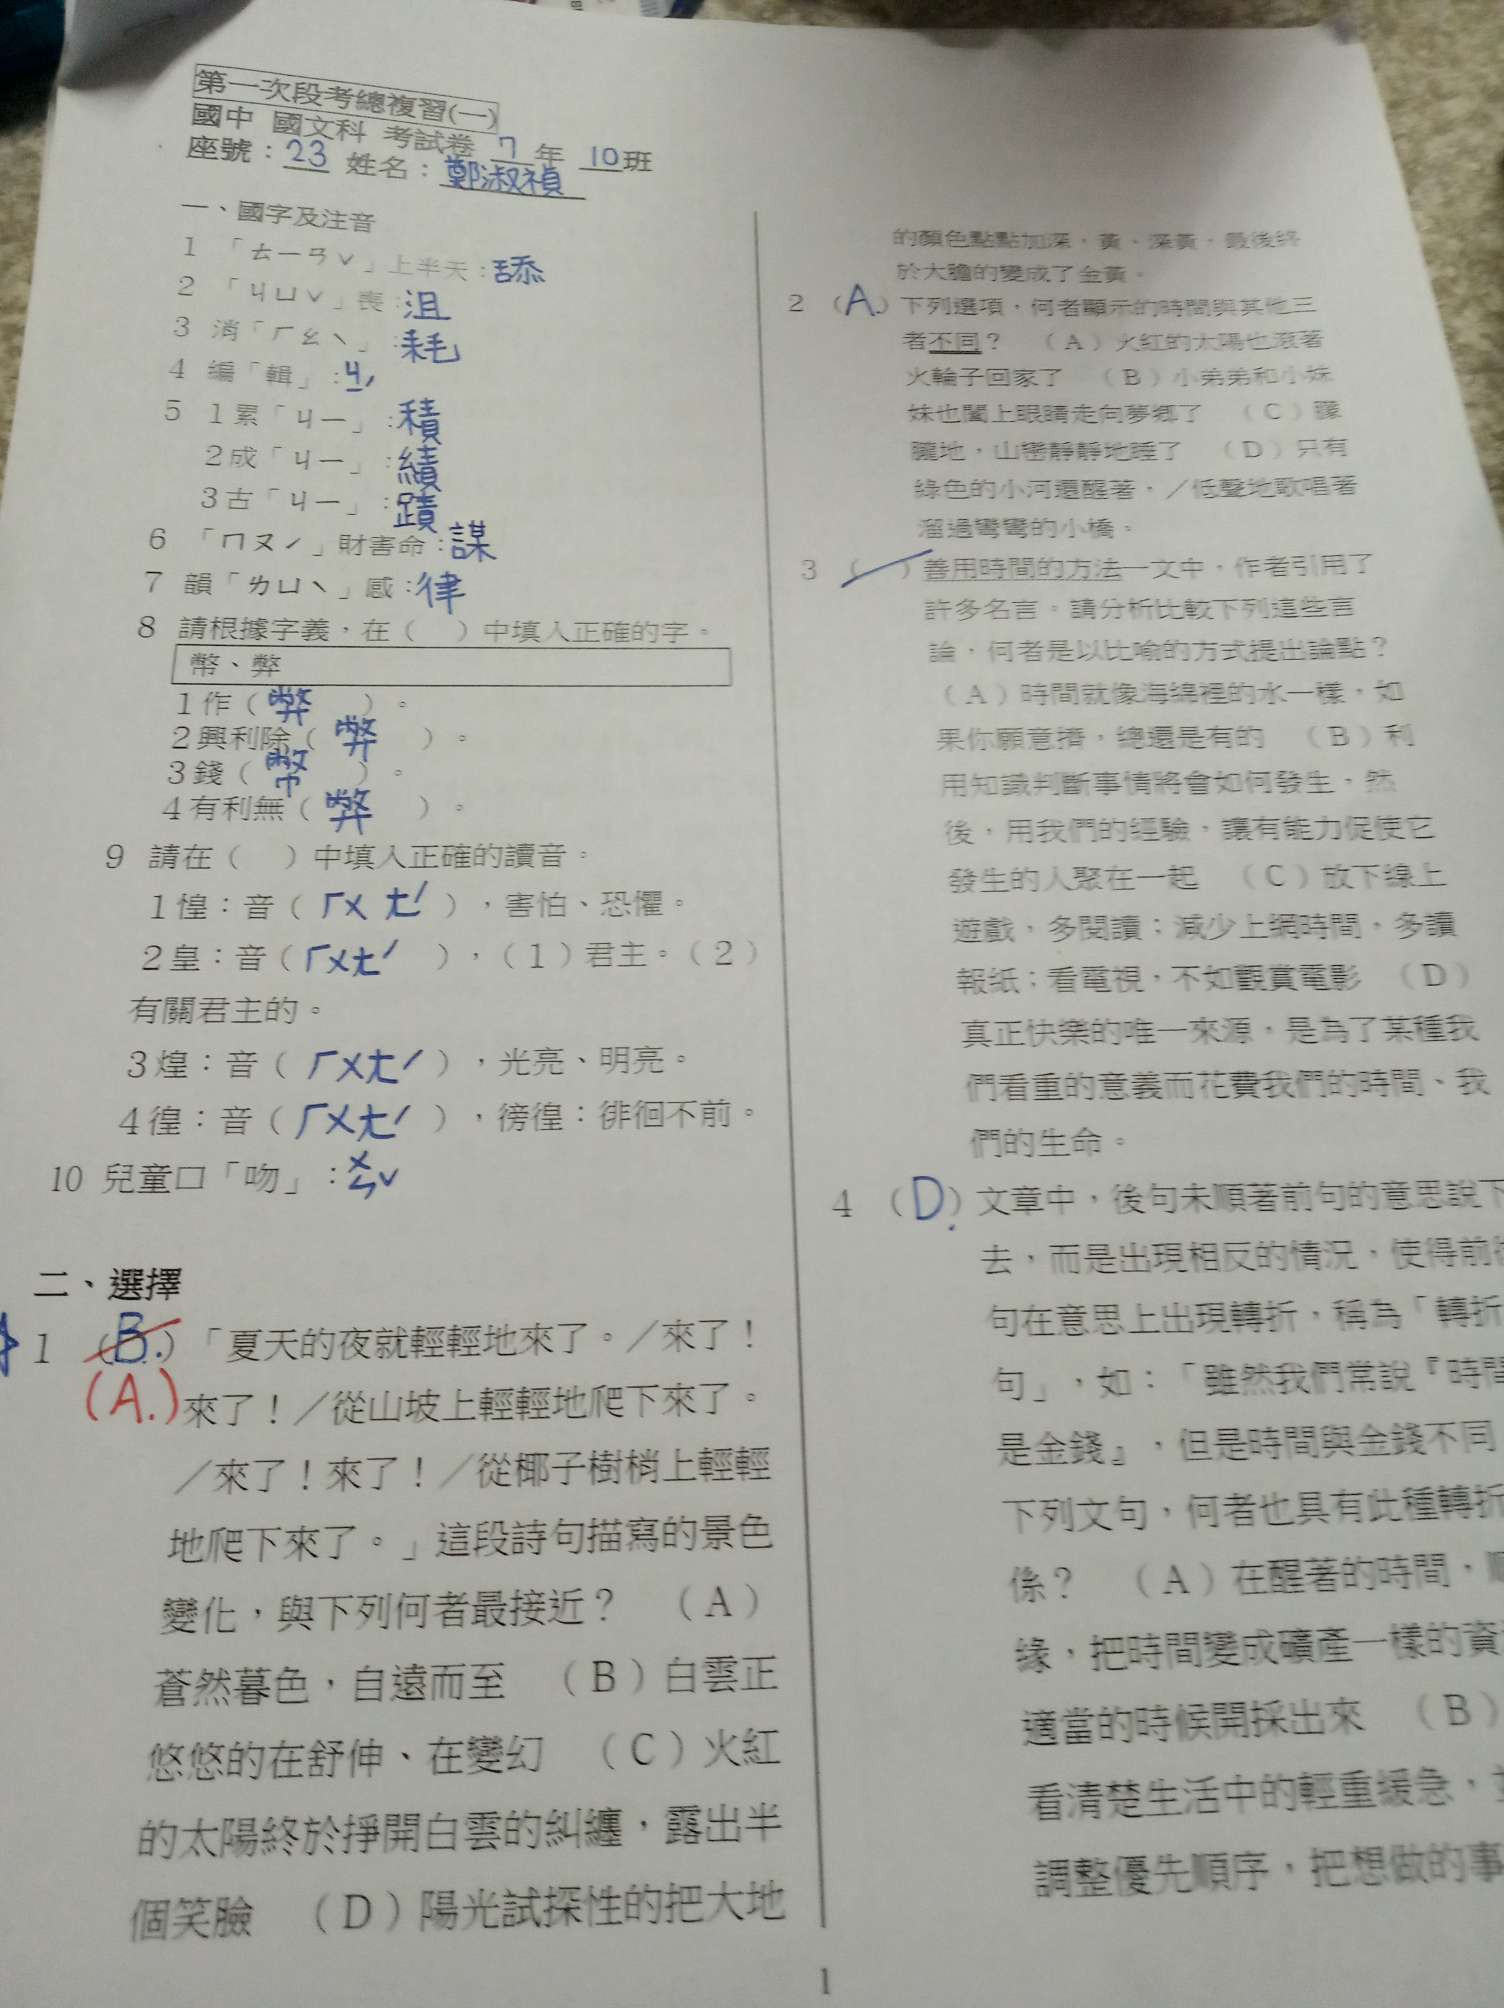 第一次段考總複習(一)
國中 國文科 考試卷 7年 10班
座號：23 姓名：鄭淑禎
一、國字及注音
1 「ㄊㄧㄢˇ」上半天：舔
2 「ㄐㄩˇ」喪：沮
3 消「ㄏㄠˋ」：耗
4 編「輯」：ㄐㄧˊ
5 1累「ㄐㄧ」：積
2成「ㄐㄧ」：績
3古「ㄐㄧ」：蹟
6 「ㄇㄡˊ」財害命：謀
7 韻「ㄌㄩˋ」感：律
8 請根據字義，在（ ）中填入正確的字。
幣、弊
1作（弊）。
2興利除（弊）。
3錢（幣）。
4有利無（弊）。
9 請在（ ）中填入正確的讀音。
1惶：音（ㄏㄨㄤˊ），害怕、恐懼。
2皇：音（ㄏㄨㄤˊ），（1）君主。（2）
有關君主的。
3煌：音（ㄏㄨㄤˊ），光亮、明亮。
4徨：音（ㄏㄨㄤˊ），徬徨：徘徊不前。
10 兒童口「吻」：ㄨㄣˇ
二、選擇
1 （B.）「夏天的夜就輕輕地來了。／來了！
(A.)來了！／從山坡上輕輕地爬下來了。
／來了！來了！／從椰子樹梢上輕輕
地爬下來了。」這段詩句描寫的景色
變化，與下列何者最接近？ （A）
蒼然暮色，自遠而至 （B）白雲正
悠悠的在舒伸、在變幻 （C）火紅
的太陽終於掙開白雲的糾纏，露出半
個笑臉 （D）陽光試探性的把大地
的顏色點點加深，黃、深黃，最後終
於大膽的變成了金黃。
2 （A.）下列選項，何者顯示的時間與其他三
者不同？ （A）火紅的太陽也滾著
火輪子回家了 （B）小弟弟和小妹
妹也闔上眼睛走向夢鄉了 （C）朦
朧地，山巒靜靜地睡了 （D）只有
綠色的小河還醒著，／低聲地歌唱著
溜過彎彎的小橋。
3 （ ）善用時間的方法一文中，作者引用了
許多名言。請分析比較下列這些言
論，何者是以比喻的方式提出論點？
（A）時間就像海綿裡的水一樣，如
果你願意擠，總還是有的 （B）利
用知識判斷事情將會如何發生，然
後，用我們的經驗，讓有能力促使它
發生的人聚在一起 （C）放下線上
遊戲，多閱讀；減少上網時間，多讀
報紙；看電視，不如觀賞電影 （D）
真正快樂的唯一來源，是為了某種我
們看重的意義而花費我們的時間、我
們的生命。
4 （D.）文章中，後句未順著前句的意思說下
去，而是出現相反的情況，使得前後
句在意思上出現轉折，稱為「轉折
句」，如：「雖然我們常說『時間
是金錢』，但是時間與金錢不同
下列文句，何者也具有此種轉折
係？ （A）在醒著的時間，
緣，把時間變成礦產一樣的資
適當的時候開採出來 （B）
看清楚生活中的輕重緩急，
調整優先順序，把想做的事
1